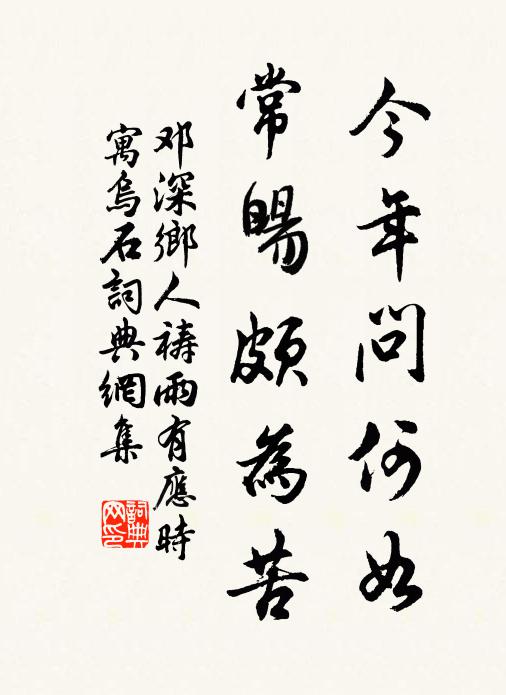 今年问何如
常暘頗為苦
邓深鄉人祷雨有應時
寓烏石詞典網集
詞典网印